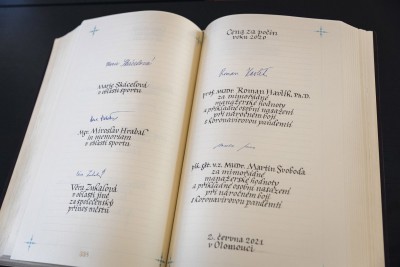 Marie Skácelová
v oblasti sportu
Mgr. Miroslav Hrabal
in memoriam
v oblasti sportu
Věra Zukalová
v oblasti jiné
za společenský
přínos městu
Cena za počin
roku 2020
Roman Havlík
prof. MUDr. Roman Havlík, Ph.D.
za mimořádné
manažerské hodnoty
a příkladné osobní nasazení
při náročném boji
s koronavirovou pandemií
plk. gšt. v.z. MUDr. Martin Svoboda
za mimořádné
manažerské hodnoty
a příkladné osobní nasazení
při náročném boji
s koronavirovou pandemií
2. června 2021
v Olomouci